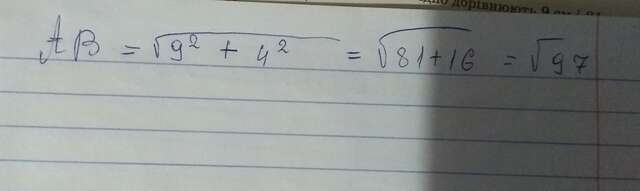 дорівнюють 9 см і
AB = √9² + 4² = √81+16 = √97